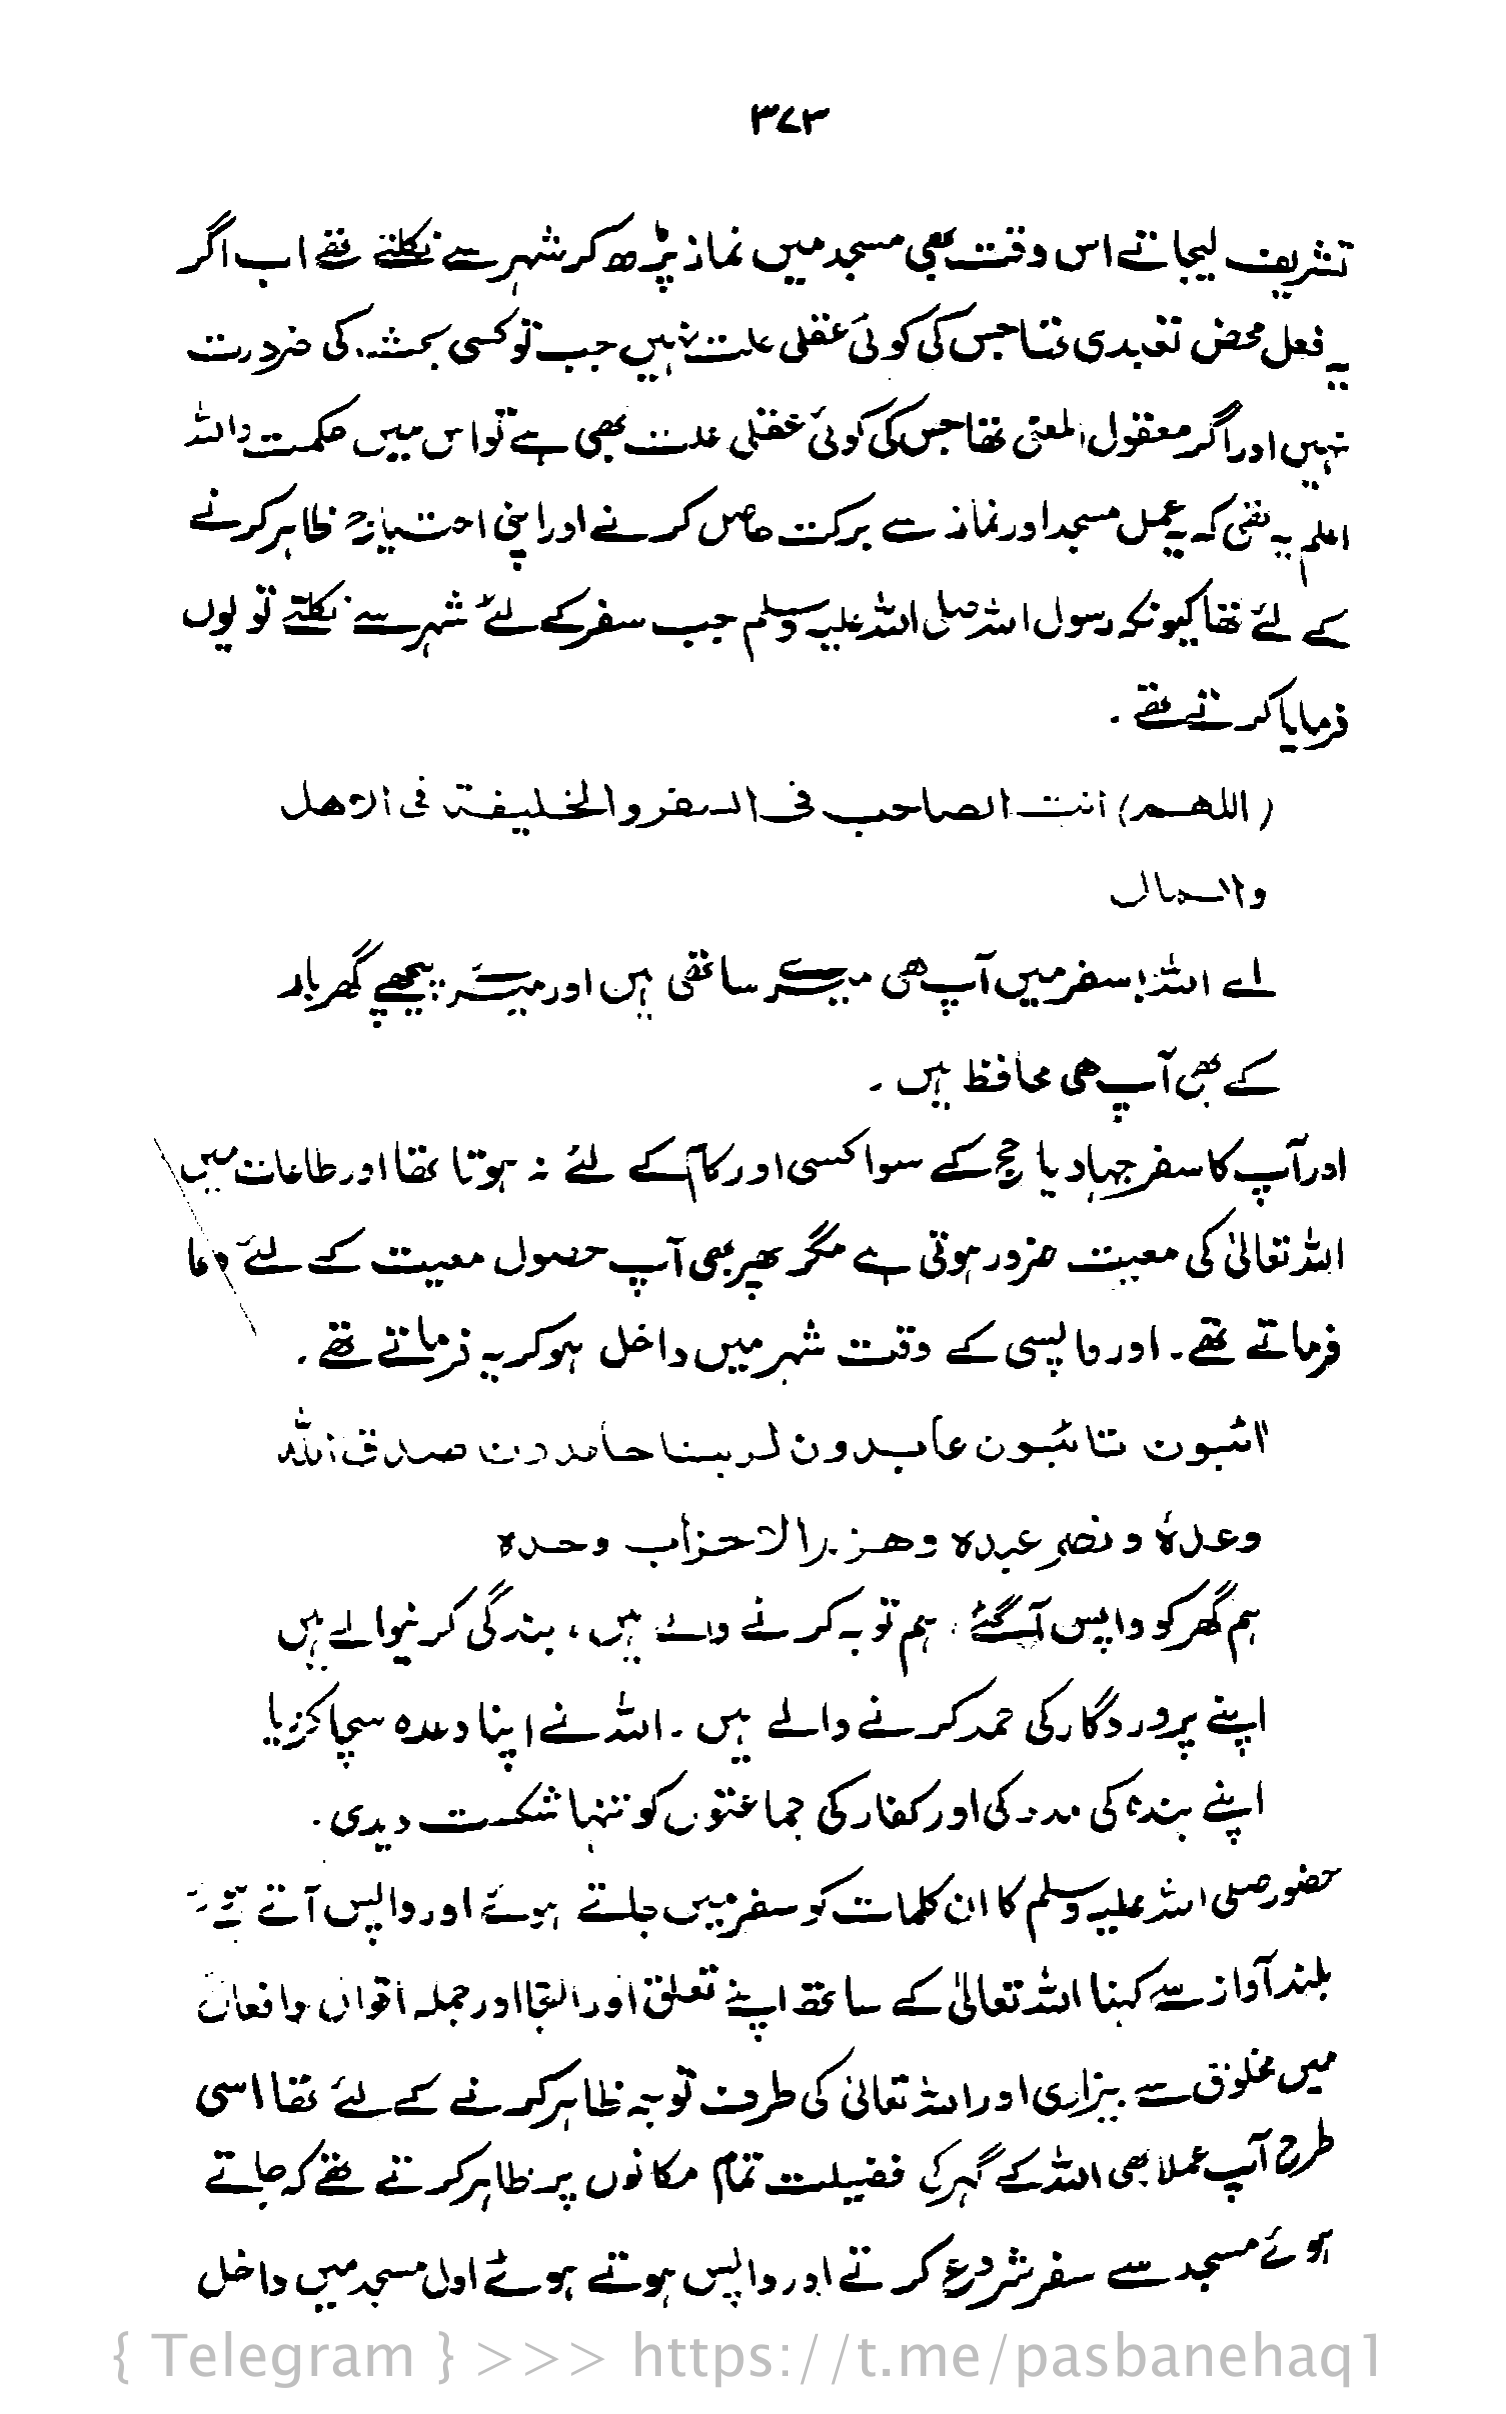 ۳۷۳
تشریف لیجاتے اس وقت بھی مسجد میں نماز پڑھ کر شہر سے نکلتے تھے اب اگر
یہ فعل محض تعبدی تھا جس کی کوئی عقلی علت نہیں جب تو کسی بحث کی ضرورت
نہیں اور اگر معقول المعنی تھا جس کی کوئی عقلی علت بھی ہے تو اس میں حکمت واللہ
اعلم یہ تھی کہ یہ عمل مسجد اور نماز سے برکت حاصل کرنے اور اپنی احتیاج ظاہر کرنے
کے لئے تھا کیونکہ رسول اللہ صلی اللہ علیہ وسلم جب سفر کے لئے شہر سے نکلتے تو یوں
فرمایا کرتے تھے ۔
(اللھم) انت الصاحب فی السفر والخلیفۃ فی الاھل
والمال
اے اللہ! سفر میں آپ ھی میرے ساتھی ہیں اور میرے پیچھے گھر بار
کے بھی آپ ھی محافظ ہیں ۔
اور آپ کا سفر جہاد یا حج کے سوا کسی اور کام کے لئے نہ ہوتا تھا اور طاعات میں
اللہ تعالیٰ کی معیت ضرور ہوتی ہے مگر پھر بھی آپ حصول معیت کے لئے دعا
فرماتے تھے۔ اور واپسی کے وقت شہر میں داخل ہو کر یہ فرماتے تھے ۔
اٰئبون تائبون عابدون لربنا حامدون صدق اللہ
وعدہٗ و نصر عبدہ وھزم الاحزاب وحدہ
ہم گھر کو واپس آگئے ، ہم توبہ کرنے والے ہیں ، بندگی کرنیوالے ہیں
اپنے پروردگار کی حمد کرنے والے ہیں ۔ اللہ نے اپنا وعدہ سچا کردیا
اپنے بندہ کی مدد کی اور کفار کی جماعتوں کو تنہا شکست دیدی ۔
حضور صلی اللہ علیہ وسلم کا ان کلمات کو سفر میں جاتے ہوئے اور واپس آتے ہوئے
بلند آواز سے کہنا اللہ تعالیٰ کے ساتھ اپنے تعلق اور التجا اور جملہ اقوال وافعال
میں مخلوق سے بیزاری اور اللہ تعالیٰ کی طرف توجہ ظاہر کرنے کے لئے تھا اسی
طرح آپ عملاً بھی اللہ کے گہر کی فضیلت تمام مکانوں پر ظاہر کرتے تھے کہ جاتے
ہوئے مسجد سے سفر شروع کرتے اور واپس ہوتے ہوئے اول مسجد میں داخل
{ Telegram } >>> https://t.me/pasbanehaq1